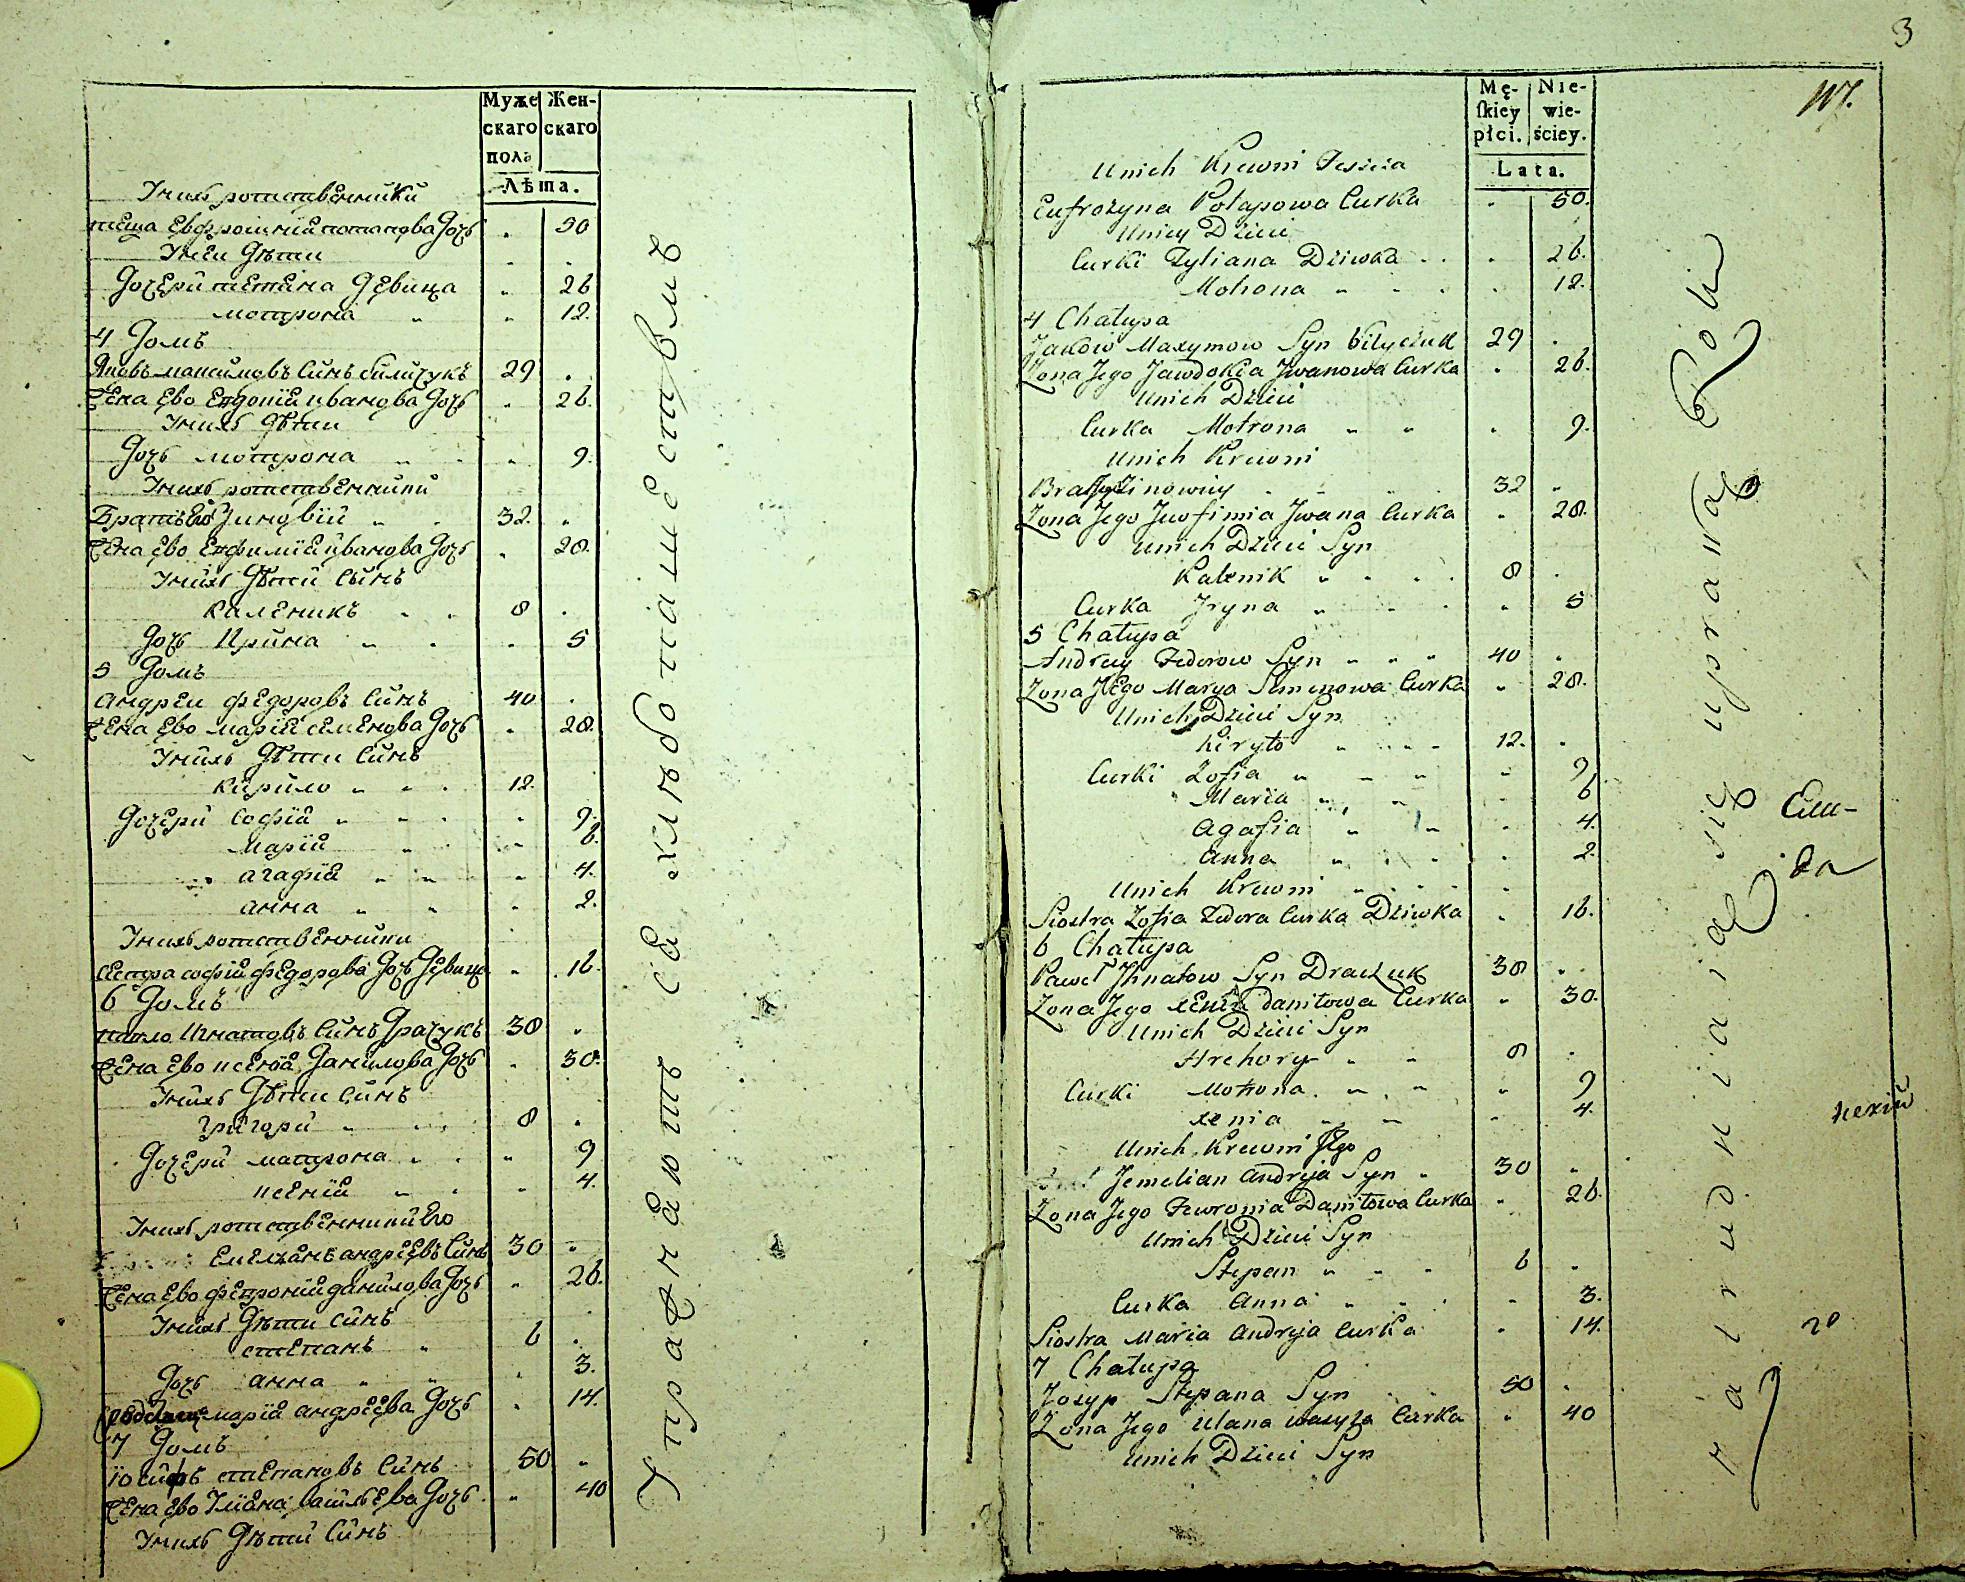 Муже Жен-
скаго скаго
пола
Лѣта.
Унихъ родственники
теща Евфросинiя потапова дочь 50
Унеи дѣти
дочери тетяна девица 26
мотрона 12.
4 домъ
Яковъ максимовъ Синъ биличукъ 29
Жена Ево Евдокiя иванова дочь 26.
Унихъ дѣти
дочь мотрона 9.
Унихъ родственники
Братъ Его Зиновiй 32.
Жена Ево Евфимiя иванова дочь 28.
Унихъ дѣти Синъ
каленикъ 8
дочь Ирина 5
5 домъ
андреи федоровъ Синъ 40
Жена Ево марiя семенова дочь 28.
Унихъ дѣти Синъ
кирило 12.
дочери софiя 9.
марiя 6.
агафiя 4.
анна 2.
Унихъ родственники
сестра софiя федорова дочь девица 16.
6 домъ
павло Игнатовъ Синъ драчукъ 38
Жена Ево ксенiя данилова дочь 30.
Унихъ дѣти Синъ
григори 8
дочери матрона 9
ксенiя 4.
Унихъ родственники Его
Емелiанъ андреевъ Синъ 30
Жена Ево феврония данилова дочь 26.
Унихъ дѣти синъ
степанъ 6
дочь анна 3.
марiя андреева дочь 14.
7 домъ
iосифъ степановъ Синъ 50
Жена Ево Улiана василЬева дочь 40
Унихъ дѣти Синъ
Упражняютъ ся хлѣбопашествомъ
3
Mę- Nie-
skiey wie-
płci. ściey.
Lata.
Unich Krewni Teszcza
Eufrozyna Potapowa Curka 50.
Uniey Dzieci
Curki Tytiana Dziwka 26.
Motrona 12.
4 Chałupa
Jakow Maxymow Syn bilyczuk 29
Zona Jego Jawdokia Jwanowa Curka 26.
Unich Dzieci
Curka Motrona 9.
Unich Krewni
Brat Jego Zinowiy 32
Zona Jego Jewfimia Jwana Curka 28.
Unich Dzieci Syn
Kalenik 8
Curka Jryna 5
5 Chałupa
Andrey Fedorow Syn 40
Zona Jego Marya Semenowa Curka 28.
Unich Dzieci Syn
Kiryło 12.
Curki Zofia 9
Maria 6
Agafia 4.
Anna 2.
Unich Krewni
Siostra Zofia Fedora Curka Dziwka 16.
6 Chałupa
Paweł Jhnatow Syn Draczuk 38
Zona Jego xenia daniłowa Curka 30.
Unich Dzieci Syn
Hrehory 8
Curki Motrona 9
xenia 4.
Unich Krewni Jego
Jemelian Andryja Syn 30
Zona Jego Fewronia Daniłowa Curka 26.
Unich Dzieci Syn
Stepan 6
Curka Anna 3.
Siostra Maria Andryja Curka 14.
7 Chałupa
Jozyp Stepana Syn 50
Zona Jego Ulana wasyla Curka 40
Unich Dzieci Syn
zatrudniaią się uprawą Roli